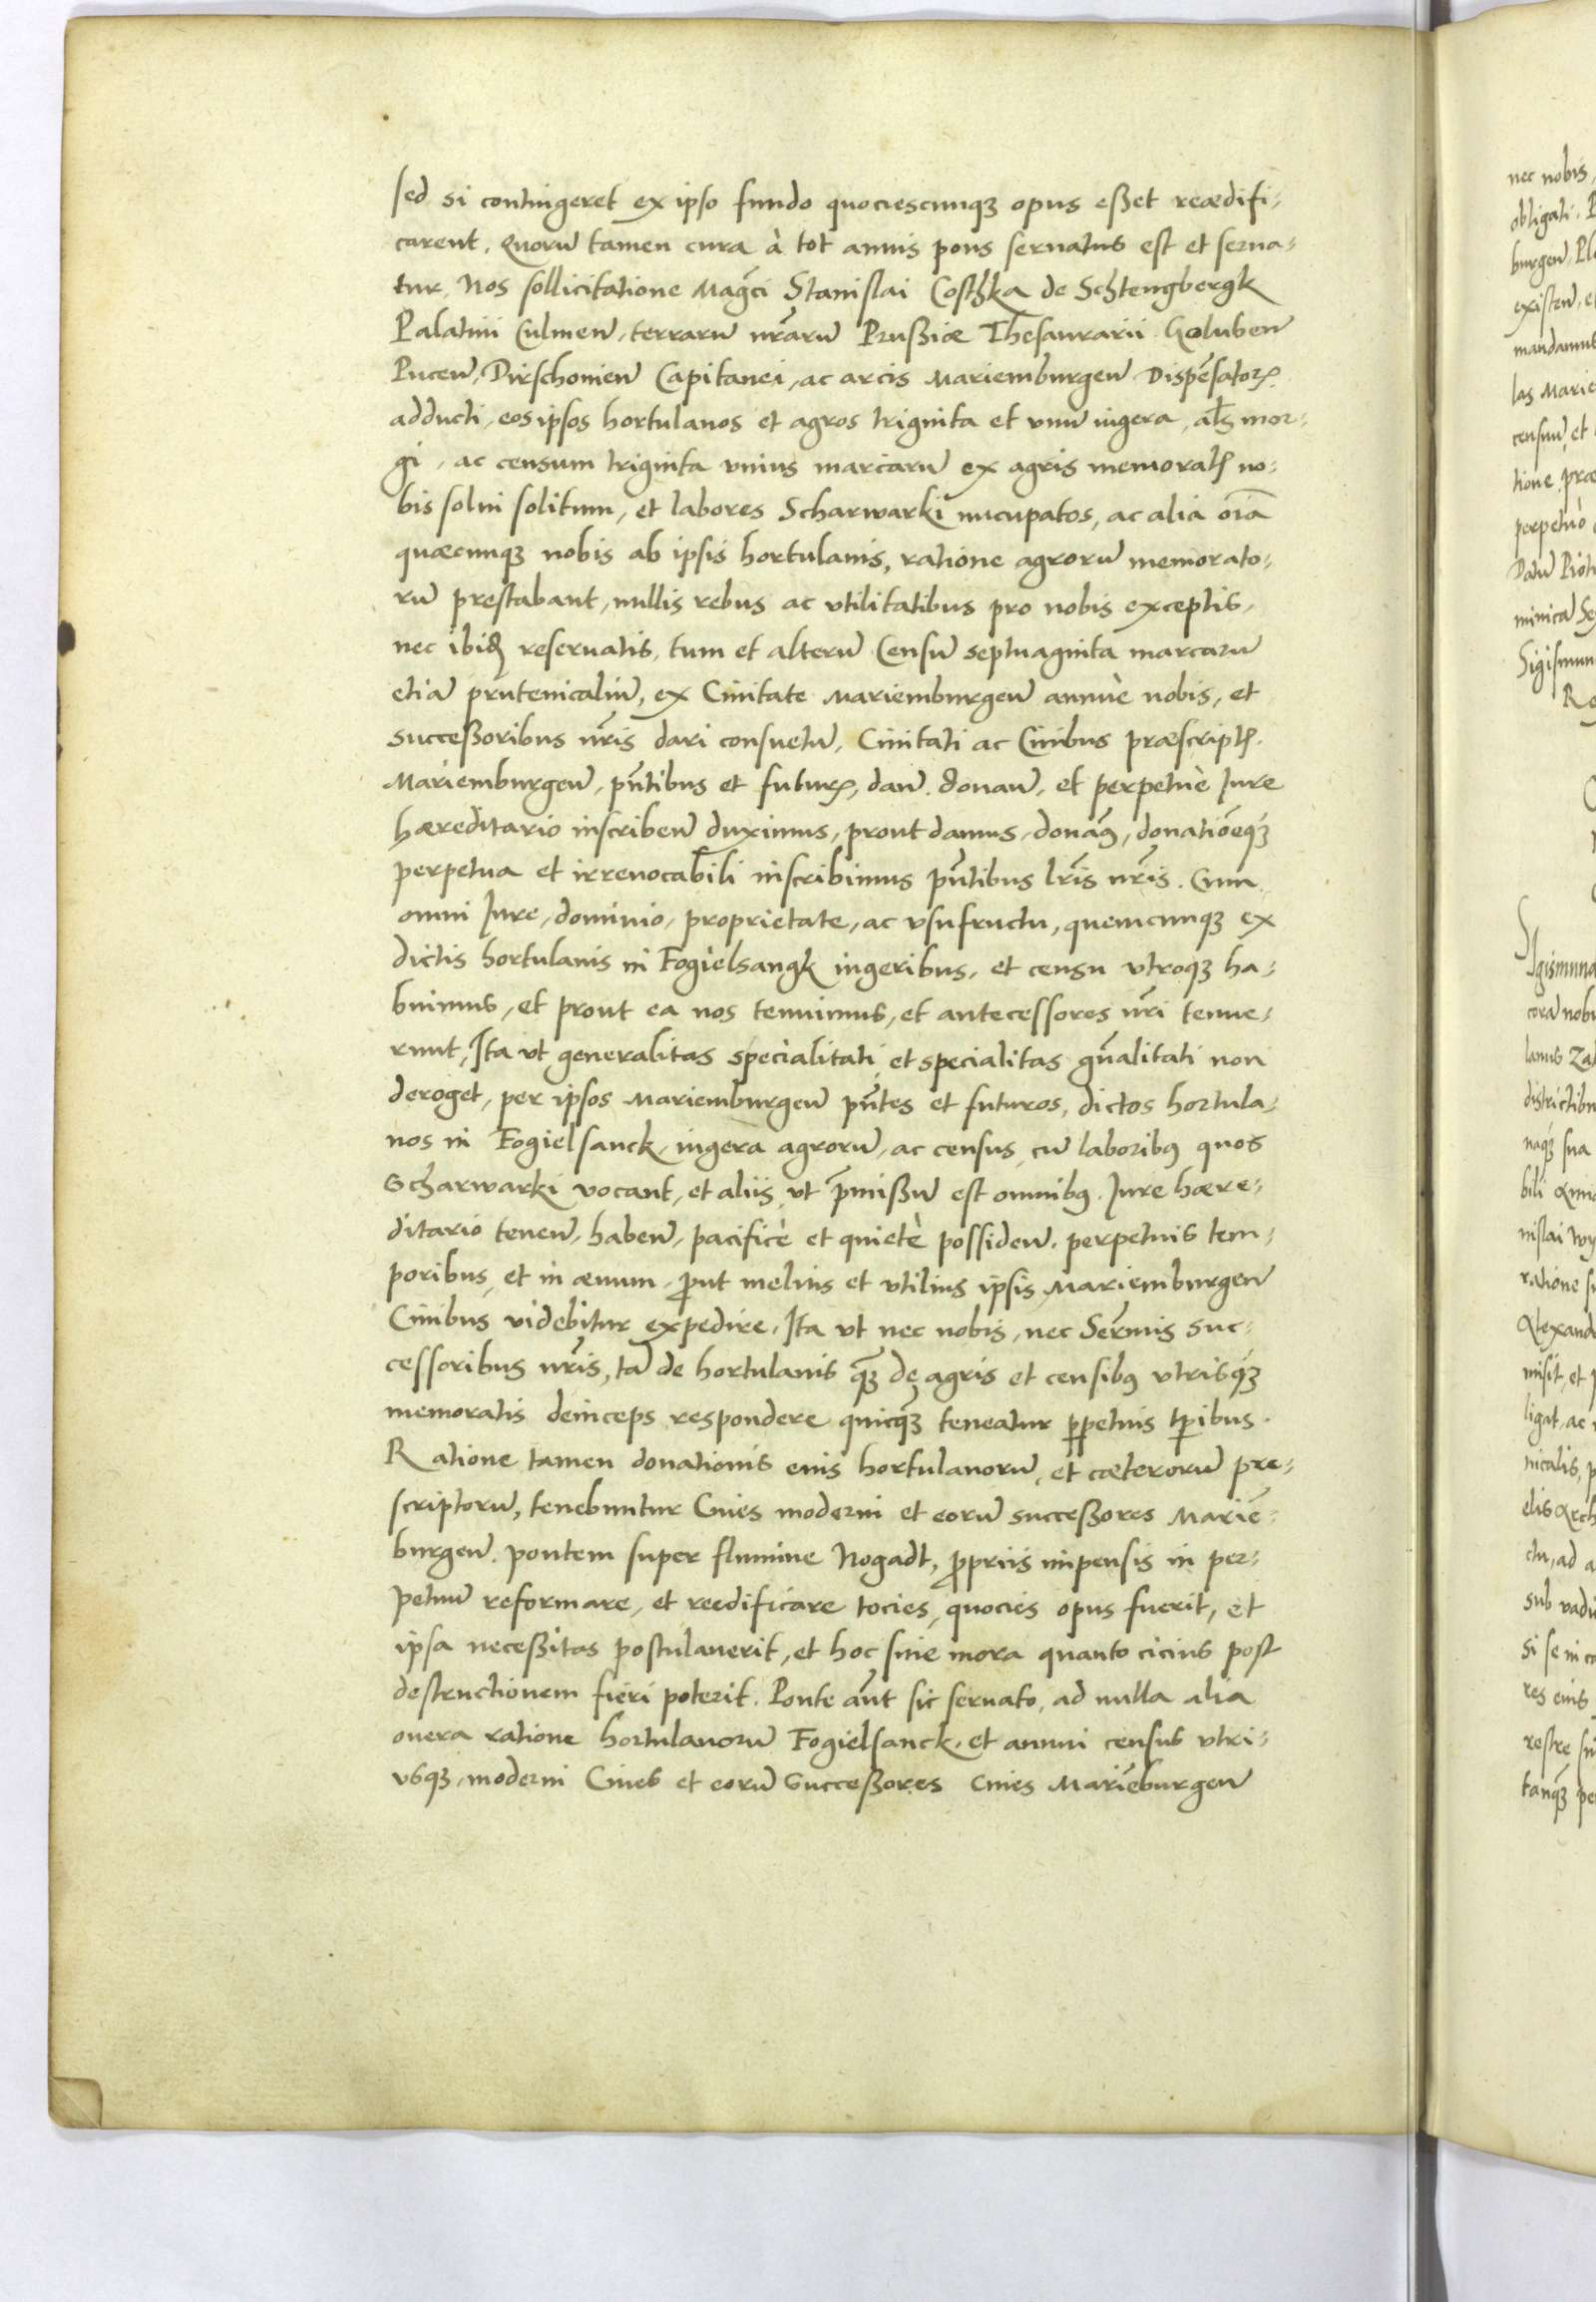 sed si contingeret ex ipso fundo quociescunq3 opus eßet reædifi-
carent. Quorũ tamen cura à tot annis pons seruatus est et serua-
tur. Nos sollicitatione Mag̃ci Stanislai Costhka de Schtengbergk
Palatini Culmeñ, terrarũ nr̃arũ Prußiæ Thesaurarii. Golubeñ
Puceñ, Dirschonieñ Capitanei, ac arcis Mariemburgeñ Dispẽsatorꝭ
adducti, eos ipsos hortulanos et agros triginta et vnũ iugera, al̃s mor-
gi, ac censum triginta vnius marcarũ ex agris memoratꝭ no-
bis solui solitum, et labores Scharwarki nũcupatos, ac alia oĩa
quæcunq3 nobis ab ipsis hortulanis, ratione agrorũ memorato-
rũ prestabant, nullis rebus ac vtilitatibus pro nobis exceptis,
nec ibidꝫ reseruatis, tum et alterũ Censũ septuaginta marcarũ
etiã prutenicaliũ, ex Ciuitate Mariemburgeñ annuè nobis, et
succeßoribus nr̃is dari consuetũ, Ciuitati ac Ciuibus præscriptꝭ.
Mariemburgeñ, pñtibus et futurꝭ, dañ. donañ, et perpetuè Jure
hæreditario inscribeñ duximus, prout damus, donãꝰ, donatiõeq3
perpetua et irreuocabili inscribimus pñtibus lr̃is nr̃is. Cum
omni Jure, dominio, proprietate, ac vsufructu, quemcunq3 ex
dictis hortulanis in Fogielsangk iugeribus, et censu vtroq3 ha-
buimus, et prout ea nos tenuimus, et antecessores nr̃i tenue-
runt, Ita vt generalitas specialitati, et specialitas gñalitati non
deroget, per ipsos Mariemburgeñ pñtes et futuros, dictos hortula-
nos in Fogielsanck, iugera agrorũ, ac census, cũ laboribꝰ quos
Scharwarki vocant, et aliis, vt p̃mißũ est omnibꝰ. Jure hære-
ditario teneñ, habeñ, pacificè et quietè possideñ. perpetuis tem-
poribus, et in æuum, ꝓut melius et vtilius ipsis Mariemburgeñ
Ciuibus videbitur expedire. Ita vt nec nobis, nec Ser̃mis suc-
cessoribus nr̃is, tã de hortulanis q̃3 de agris et censibꝰ vtrisq3
memoratis deinceps respondere quicq̃3 teneatur ꝑpetuis tꝑibus.
Ratione tamen donationis eius hortulanorũ, et cæterorũ pre-
scriptorũ, tenebuntur Ciues moderni et eorũ succeßores Mariẽ-
burgeñ. pontem super flumine Nogadt, ꝓpriis impensis in per-
petuũ reformare, et reedificare tocies, quocies opus fuerit, et
ipsa neceßitas postulauerit, et hoc sine mora quanto cicius post
destructionem fieri poterit. Ponte aũt sic seruato, ad nulla alia
onera ratione hortulanorũ Fogielsanck, et annui census vtri-
vsq3, moderni Ciues et eorũ Succeßores Ciues Mariẽburgeñ